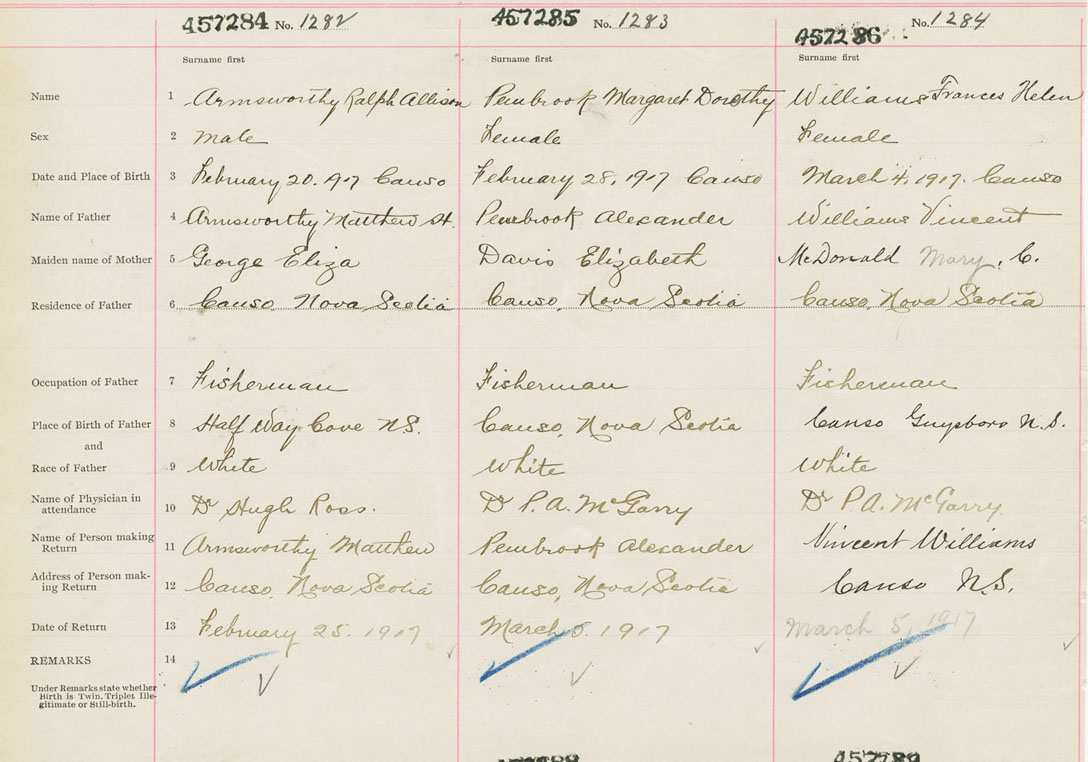 457284 No. 1282 457285 No. 1283 457286 No. 1284
Surname first Surname first Surname first
Name 1 Armsworthy Ralph Allison Pembrook Margaret Dorothy Williams Frances Helen
Sex 2 male Female Female
Date and Place of Birth 3 February 20. 1917 Canso February 28, 1917 Canso March 4, 1917. Canso
Name of Father 4 Armsworthy Matthew H. Pembrook Alexander Williams Vincent
Maiden name of Mother 5 George Eliza Davis Elizabeth McDonald Mary, C.
Residence of Father 6 Canso, Nova Scotia Canso, Nova Scotia Canso, Nova Scotia
Occupation of Father 7 Fisherman Fisherman Fisherman
Place of Birth of Father 8 Half Way Cove N.S. Canso, Nova Scotia Canso Guysboro N.S.
and
Race of Father 9 White White White
Name of Physician in
attendance 10 Dr Hugh Ross. Dr P.A. McGarry Dr P.A. McGarry
Name of Person making
Return 11 Armsworthy Matthew Pembrook Alexander Vincent Williams
Address of Person mak-
ing Return 12 Canso, Nova Scotia Canso, Nova Scotia Canso N.S.
Date of Return 13 February 25. 1917 March 5. 1917 March 5, 1917
REMARKS 14
Under Remarks state whether
Birth is Twin, Triplet, Ille-
gitimate or Still-birth.
457289